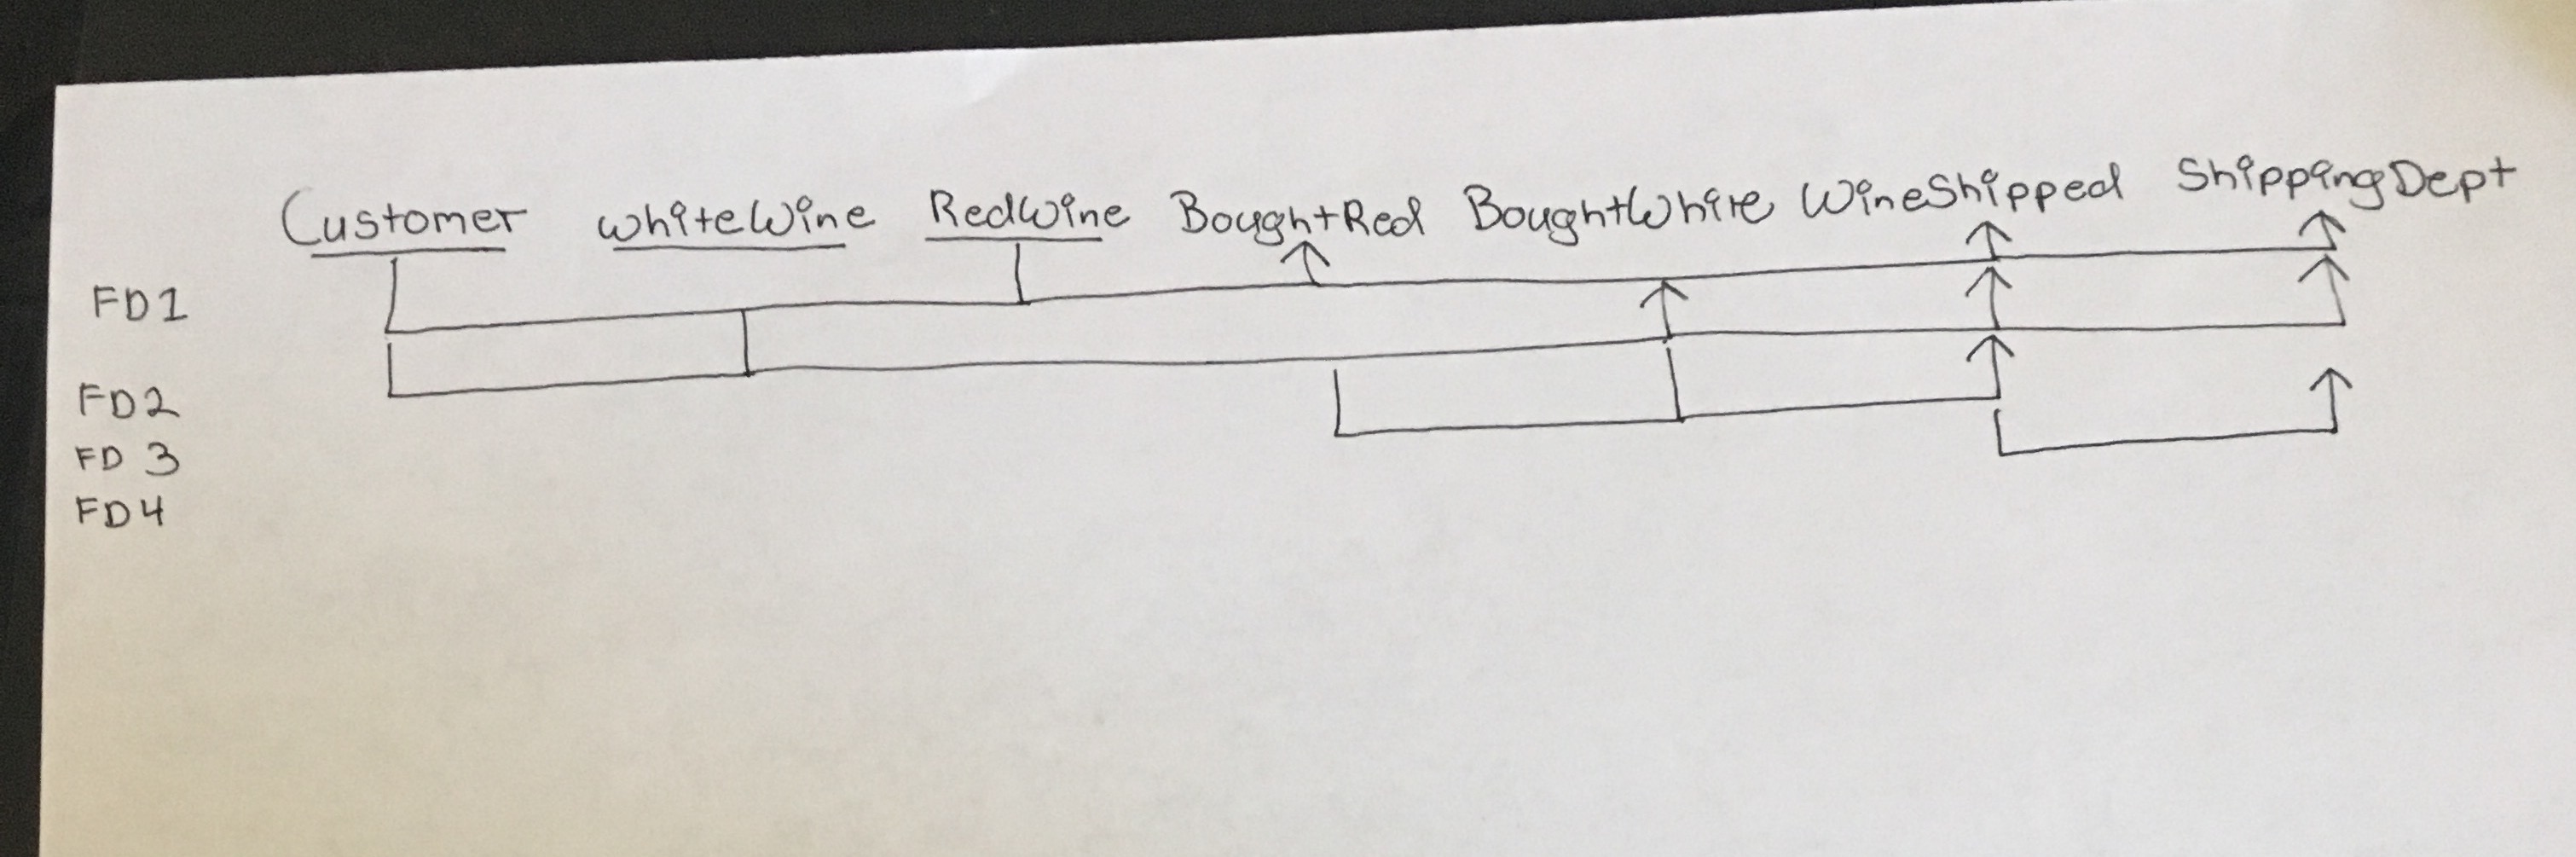 Customer whiteWine RedWine BoughtRed BoughtWhite WineShipped ShippingDept
FD1
FD2
FD 3
FD4